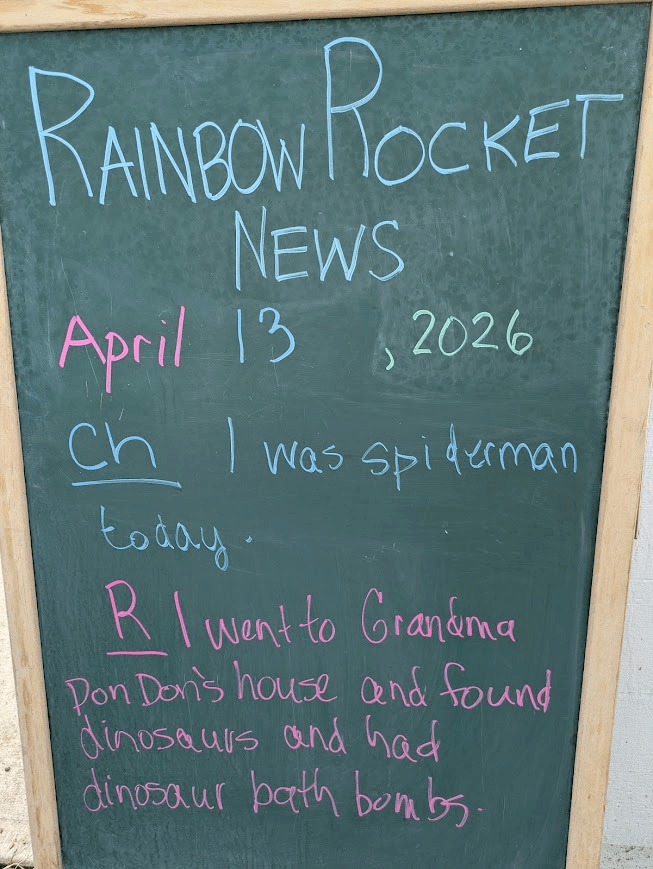 RAINBOW ROCKET
NEWS
April 13 , 2026
Ch I was spiderman
today.
R I went to Grandma
Don Don's house and found
dinosaurs and had
dinosaur bath bombs.